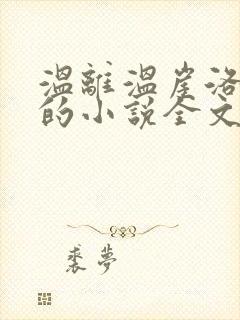 溫離溫崖洛
的小說全文
裘夢